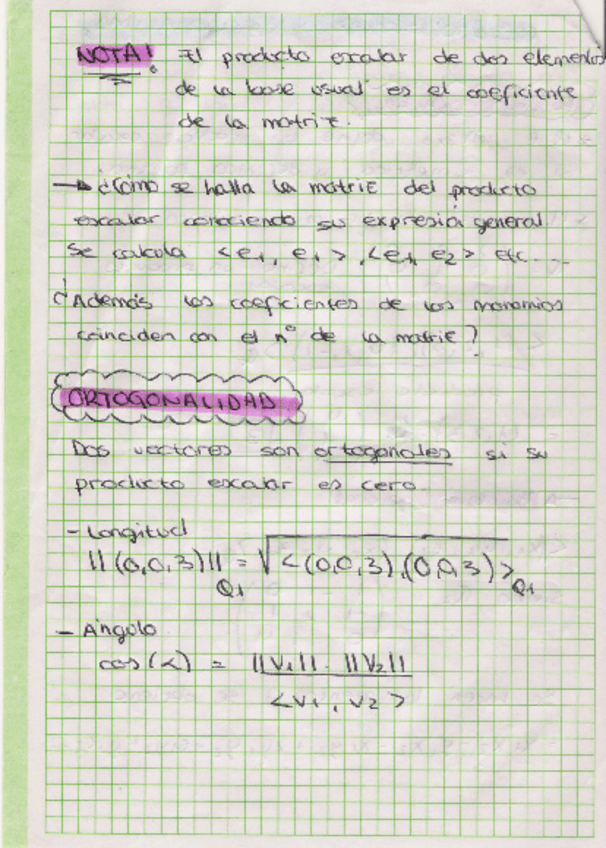 NOTA! El producto escalar de dos elementos
de la base usual es el coeficiente
de la matriz.
→ ¿Cómo se halla la matriz del producto
escalar conociendo su expresión general.
Se calcula <e₁, e₁>, <e₁, e₂> etc....
¿Además los coeficientes de los monomios
coinciden con el nº de la matriz?
ORTOGONALIDAD
Dos vectores son ortogonales si su
producto escalar es cero.
- Longitud
||(0,0,3)||_Q₁ = √<(0,0,3),(0,0,3)>_Q₁
- Angulo
cos(α) = ||V₁|| . ||V₂||
<V₁, V₂>